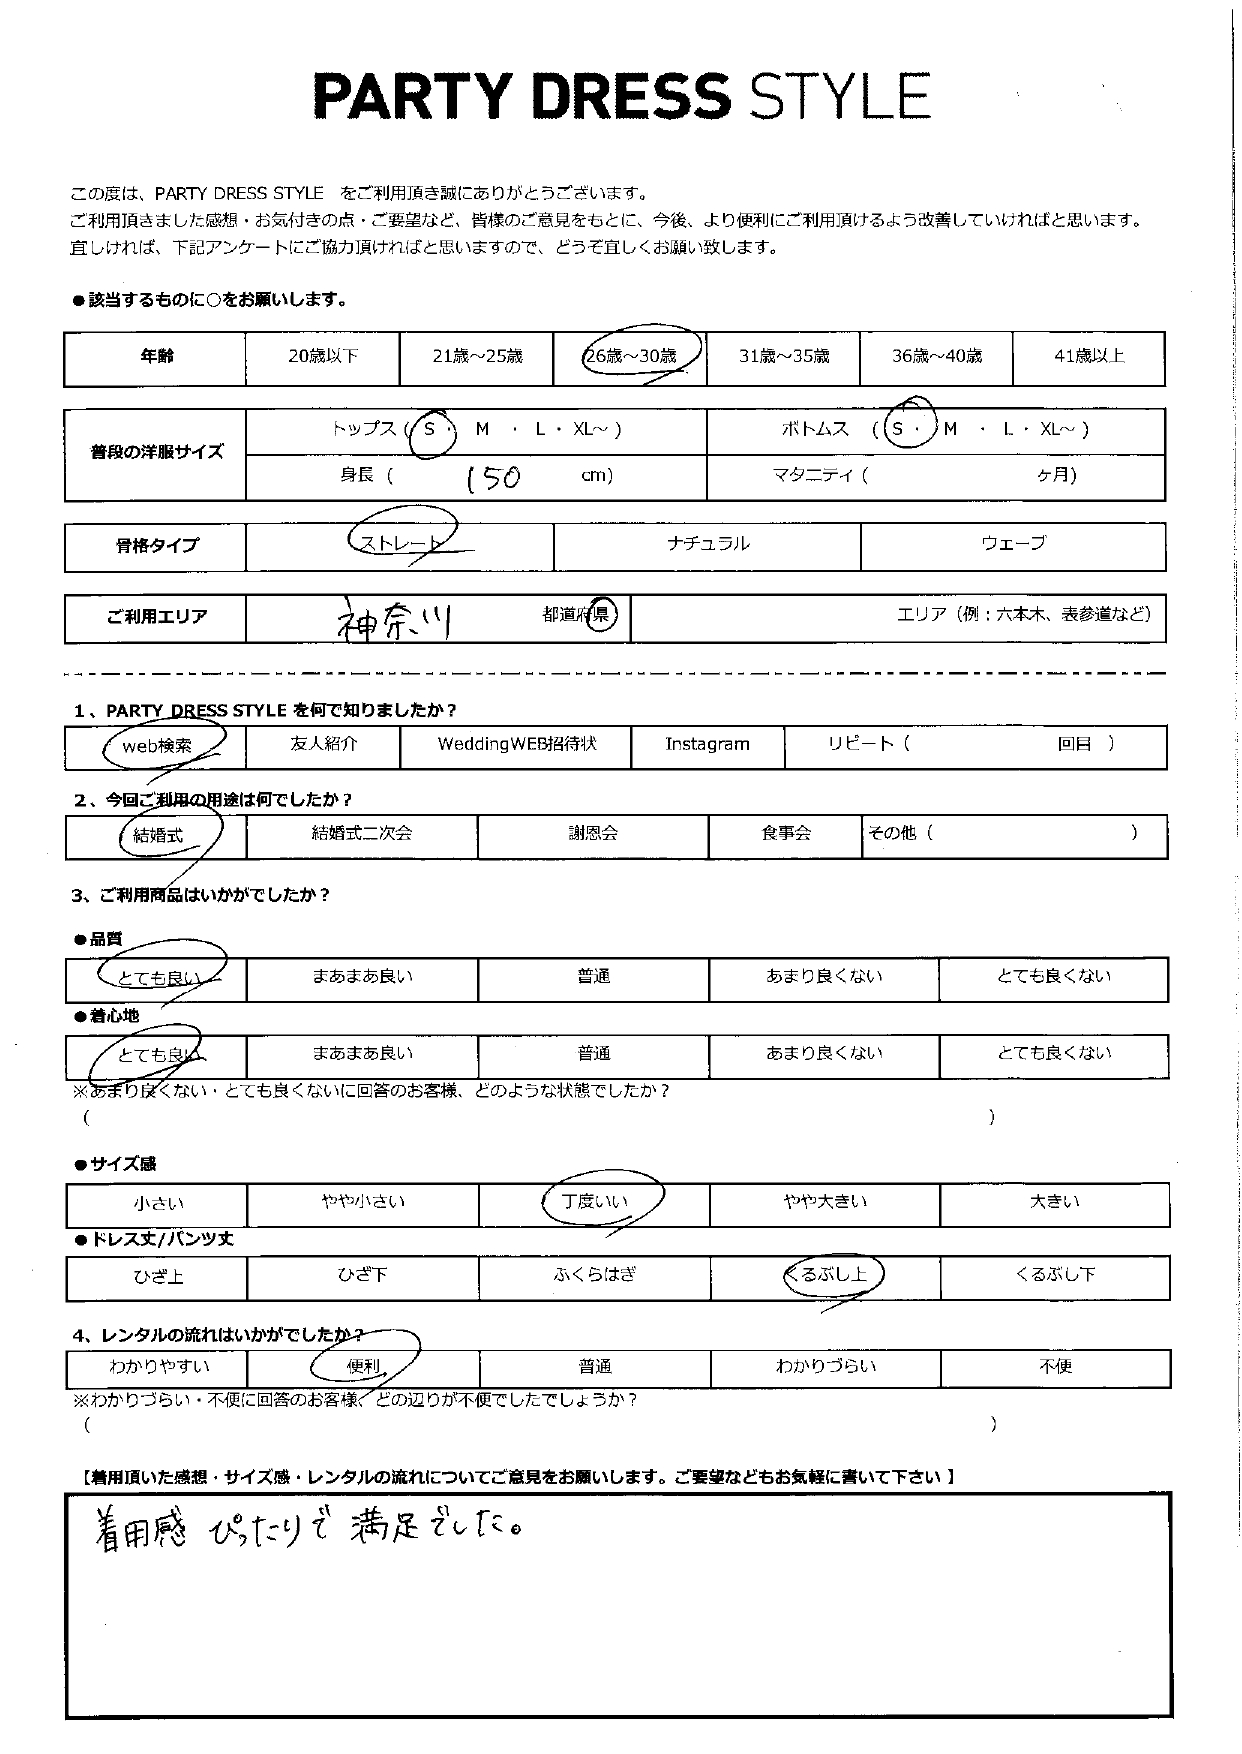 PARTY DRESS STYLE
この度は、PARTY DRESS STYLE をご利用頂き誠にありがとうございます。
ご利用頂きました感想・お気付きの点・ご要望など、皆様のご意見をもとに、今後、より便利にご利用頂けるよう改善していければと思います。
宜しければ、下記アンケートにご協力頂ければと思いますので、どうぞ宜しくお願い致します。
●該当するものに○をお願いします。
年齢 20歳以下 21歳～25歳 26歳～30歳 31歳～35歳 36歳～40歳 41歳以上
普段の洋服サイズ
トップス ( S ・ M ・ L ・ XL～ ) ボトムス ( S ・ M ・ L ・ XL～ )
身長 ( 150 cm) マタニティ ( ヶ月)
骨格タイプ ストレート ナチュラル ウェーブ
ご利用エリア 神奈川 都道府県 エリア（例：六本木、表参道など）
1、PARTY DRESS STYLE を何で知りましたか？
web検索 友人紹介 WeddingWEB招待状 Instagram リピート ( 回目 )
2、今回ご利用の用途は何でしたか？
結婚式 結婚式二次会 謝恩会 食事会 その他 ( )
3、ご利用商品はいかがでしたか？
●品質
とても良い まあまあ良い 普通 あまり良くない とても良くない
●着心地
とても良い まあまあ良い 普通 あまり良くない とても良くない
※あまり良くない・とても良くないに回答のお客様、どのような状態でしたか？
( )
●サイズ感
小さい やや小さい 丁度いい やや大きい 大きい
●ドレス丈/パンツ丈
ひざ上 ひざ下 ふくらはぎ くるぶし上 くるぶし下
4、レンタルの流れはいかがでしたか？
わかりやすい 便利 普通 わかりづらい 不便
※わかりづらい・不便に回答のお客様、どの辺りが不便でしたでしょうか？
( )
【着用頂いた感想・サイズ感・レンタルの流れについてご意見をお願いします。ご要望などもお気軽に書いて下さい 】
着用感 ぴったりで 満足でした。